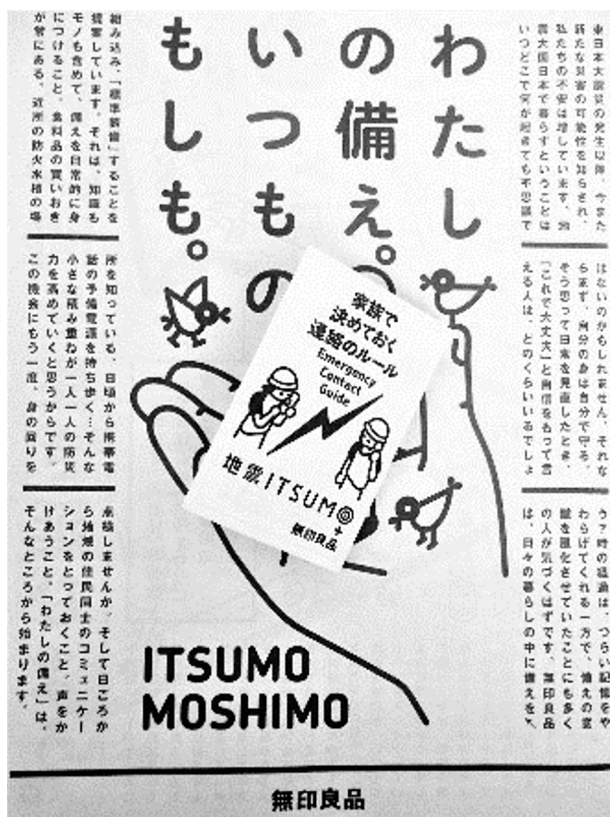 わたし
の備え。
いつもの
もしも。
東日本大震災の発生以降、今また
新たな災害の可能性を知らされ、
私たちの不安は増しています。地
震大国日本で暮らすということは
いつどこで何が起きても不思議で
はないのかもしれません。それな
らまず、自分の身は自分で守る。
そう思って日常を見直したとき、
「これで大丈夫」と自信をもって言
える人は、どのくらいいるでしょ
う？時の経過は、つらい記憶をや
わらげてくれる一方で、備えの意
識を風化させていたことにも多く
の人が気づくはずです。無印良品
は、日々の暮らしの中に備えを
組み込み、「標準装備」することを
提案しています。それは、知識も
モノも含めて、備えを日常的に身
につけること。食料品の買いおき
が常にある、近所の防火水槽の場
所を知っている、日頃から携帯電
話の予備電源を持ち歩く…そんな
小さな積み重ねが一人一人の防災
力を高めていくと思うからです。
この機会にもう一度、身の回りを
点検しませんか。そして日ごろか
ら地域の住民同士のコミュニケー
ションをとっておくこと、声をか
けあうこと。「わたしの備え」は、
そんなところから始まります。
家族で
決めておく
連絡のルール
Emergency
Contact
Guide
地震ITSUMO
+
無印良品
ITSUMO
MOSHIMO
無印良品